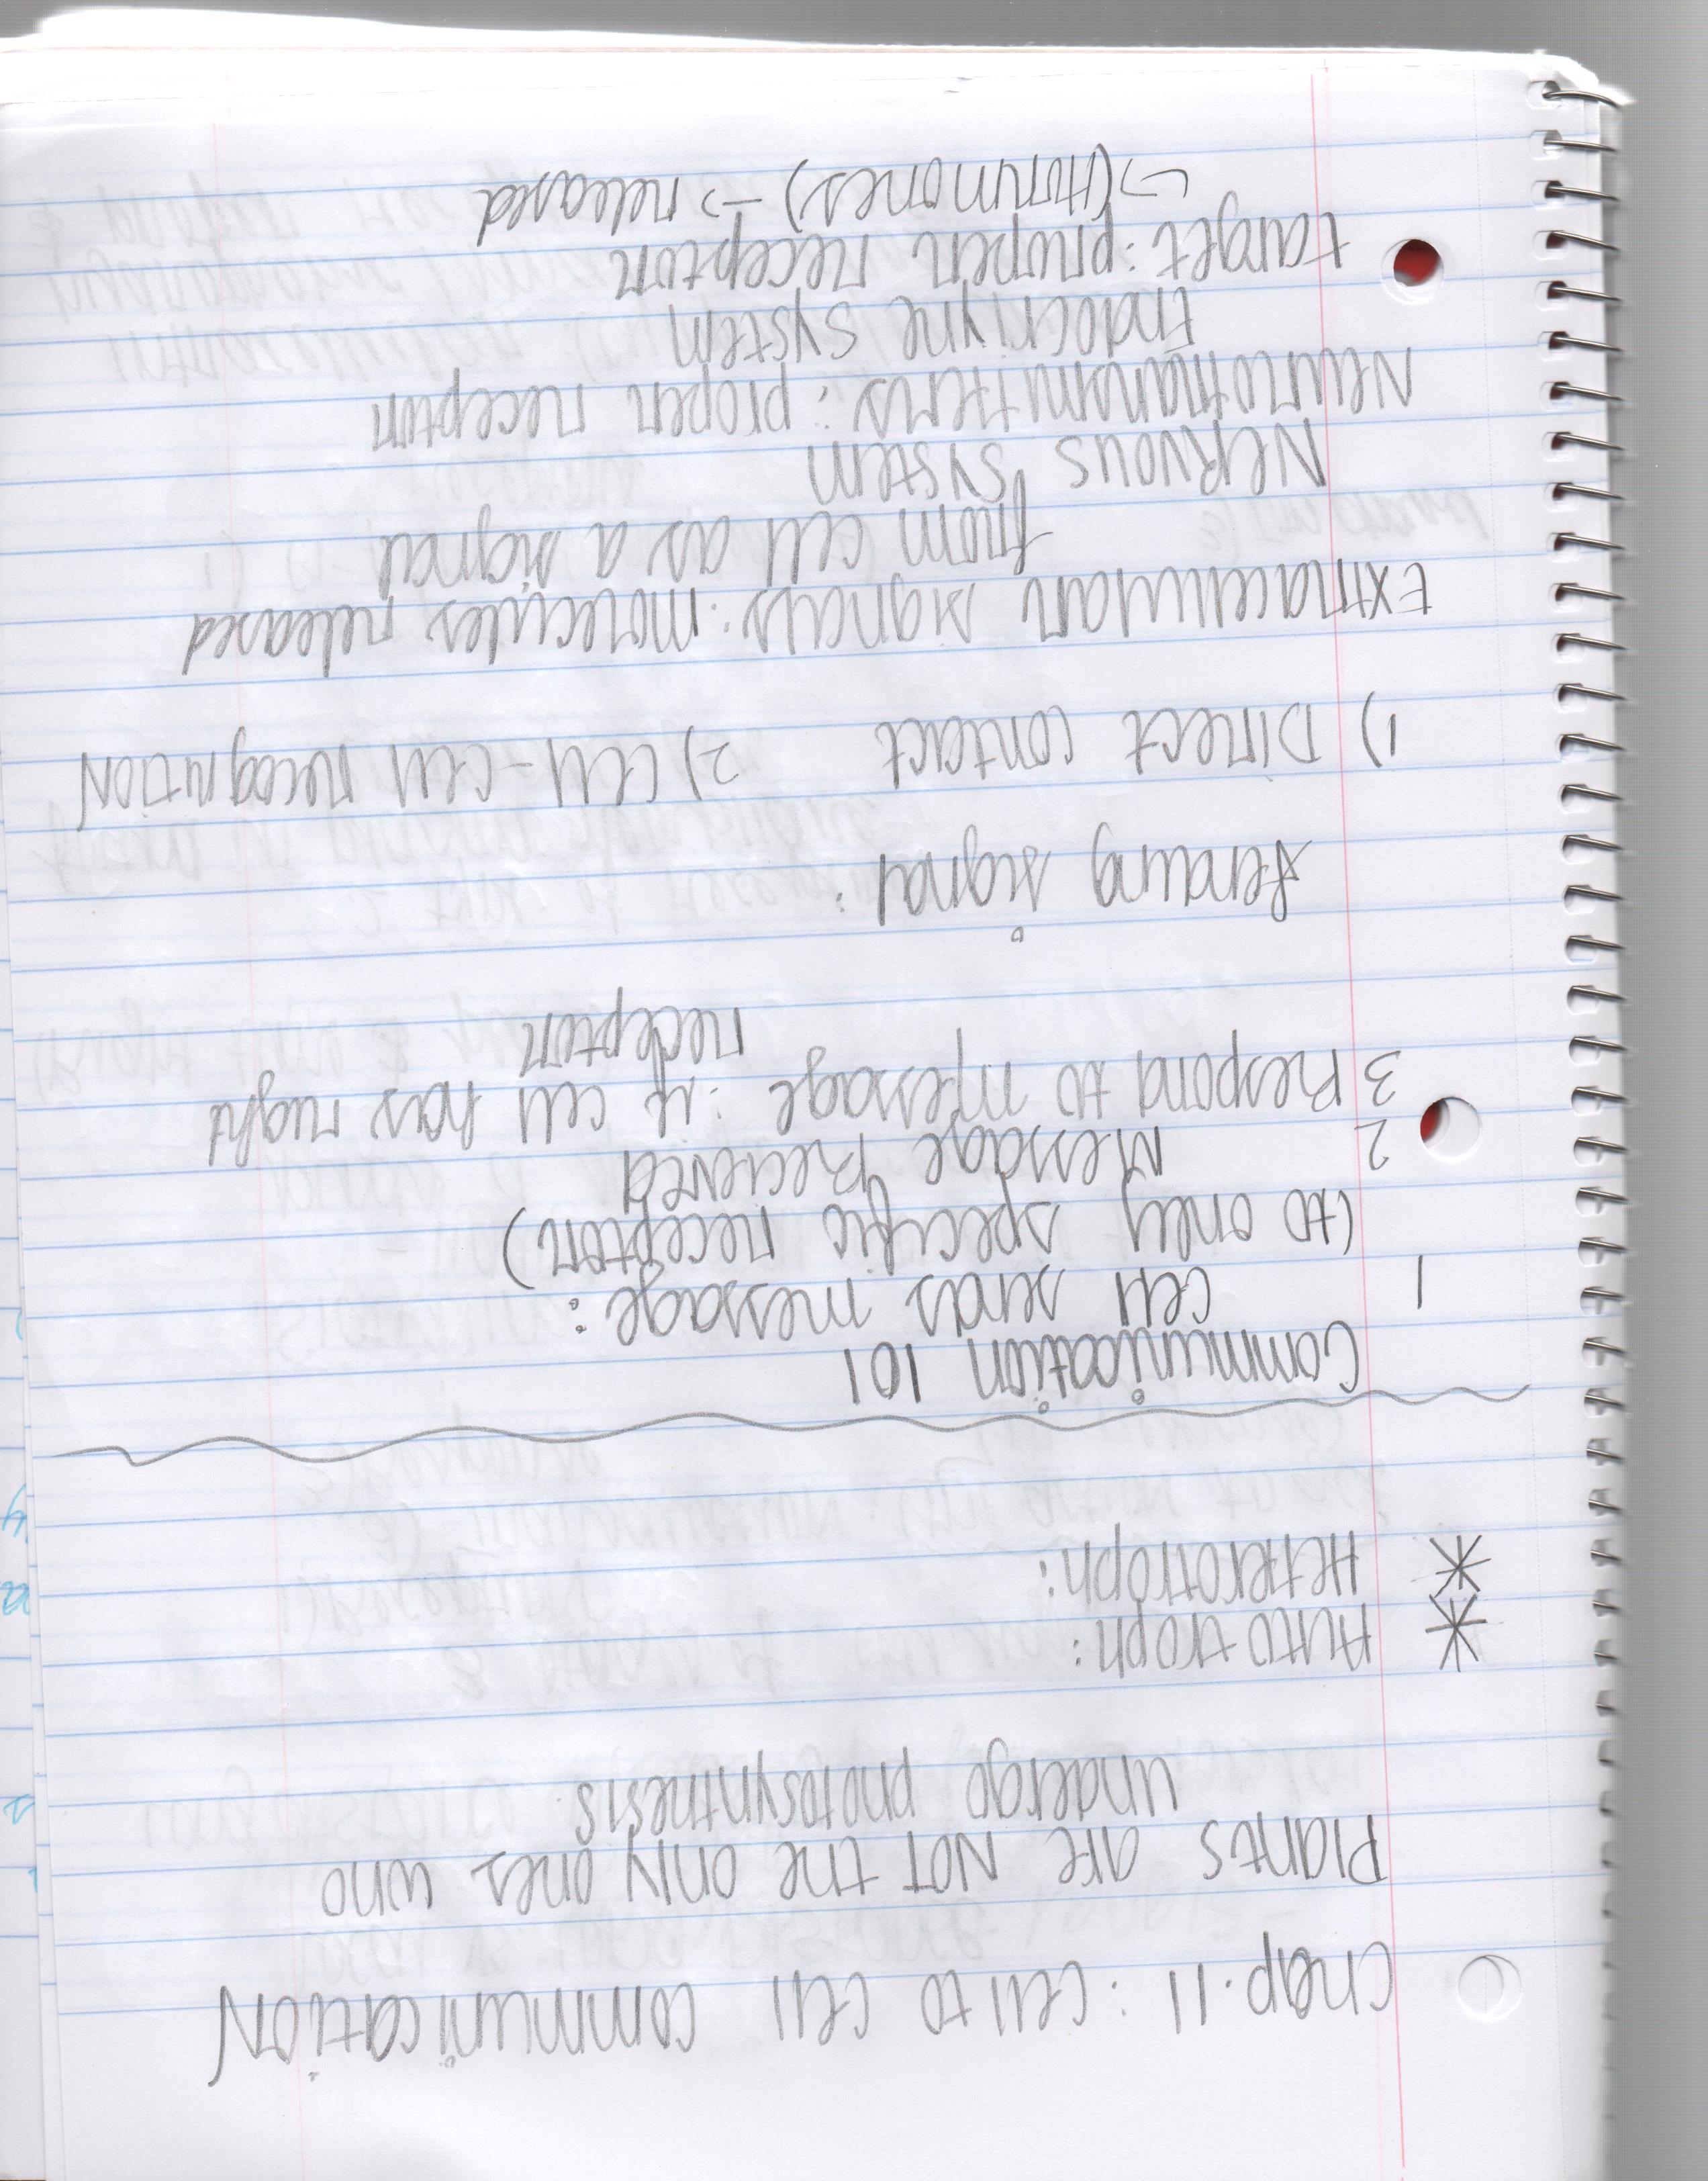 Chap. 11 : Cell to cell communication
Plants are NOT the only ones who
undergo photosynthesis
* Autotroph:
* Heterotroph:
Communication 101
1 Cell sends message :
(to only specific receptor)
2 Message Recieved
3 Respond to message : if cell has right
receptor
Sending signal :
1) Direct contact 2) Cell-Cell recognition
Extracellular signals : molecules released
from cell as a signal
Nervous system
Neurotransmitters : proper receptor
Endocriyne system
target : proper receptor
↳ (Hormones) → released